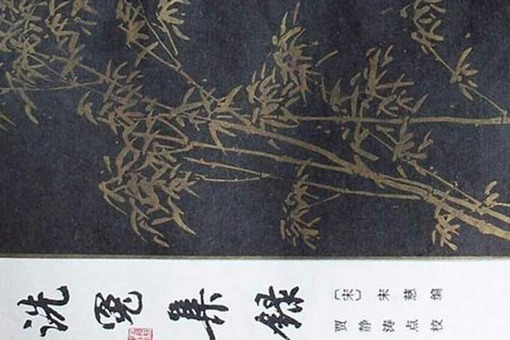 洗冤集錄
〔宋〕宋慈编
贾静涛点校